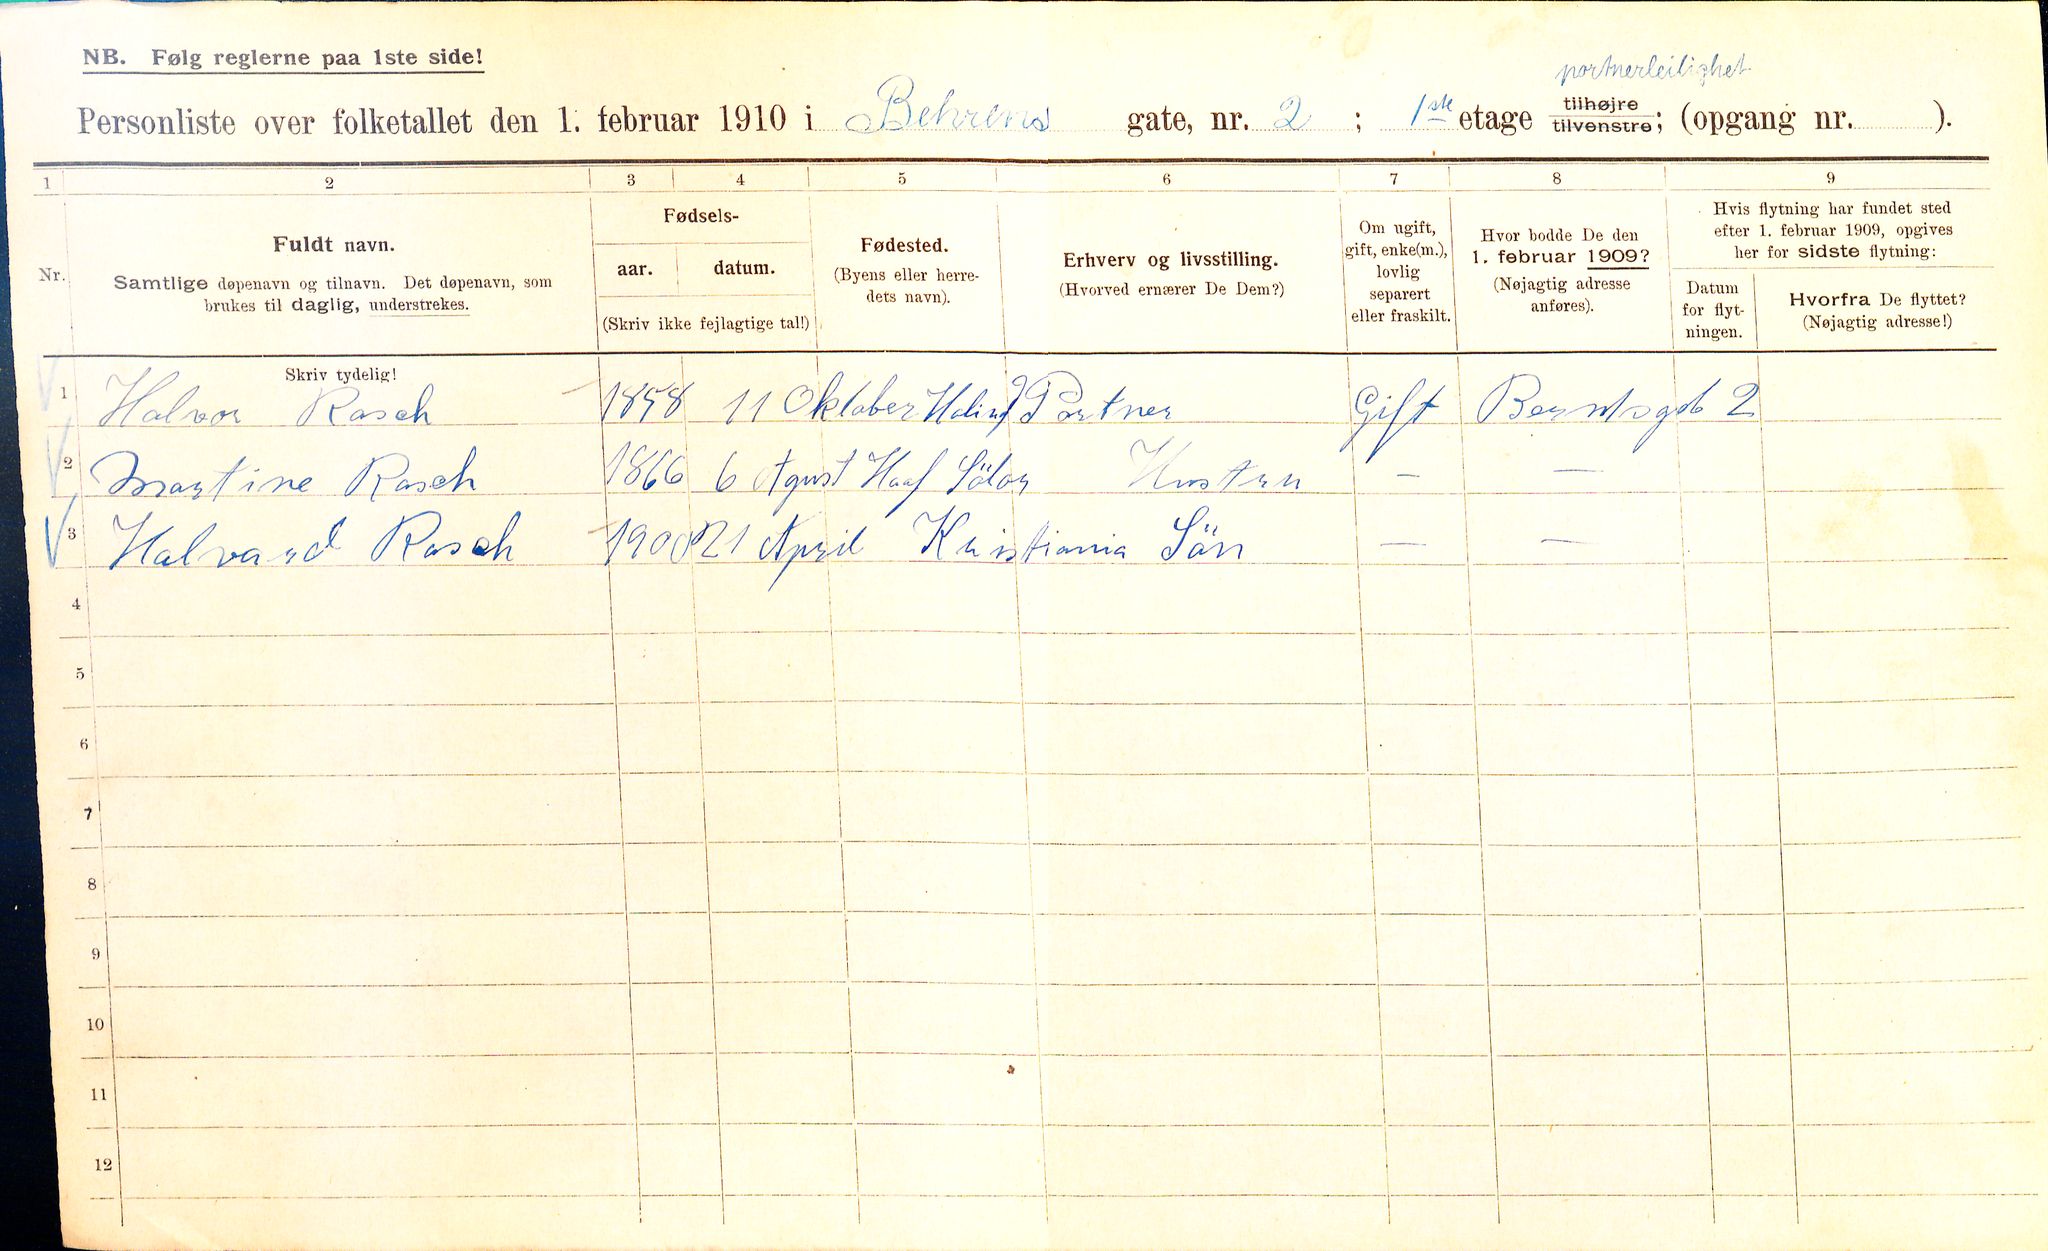 NB. Følg reglerne paa 1ste side!
portnerleilighet
Personliste over folketallet den 1. februar 1910 i Behrens gate, nr. 2 ; 1ste etage tilhøjre tilvenstre; (opgang nr. ).
1 2 3 4 5 6 7 8 9
Nr.
Fuldt navn.
Samtlige døpenavn og tilnavn. Det døpenavn, som
brukes til daglig, understrekes.
Skriv tydelig!
Fødsels-
aar. datum.
(Skriv ikke fejlagtige tal!)
Fødested.
(Byens eller herre-
dets navn).
Erhverv og livsstilling.
(Hvorved ernærer De Dem?)
Om ugift,
gift, enke(m.),
lovlig
separert
eller fraskilt.
Hvor bodde De den
1. februar 1909?
(Nøjagtig adresse
anføres).
Hvis flytning har fundet sted
efter 1. februar 1909, opgives
her for sidste flytning:
Datum
for flyt-
ningen.
Hvorfra De flyttet?
(Nøjagtig adresse!)
1 Halvor Rasch 11 Oktober Portner Gift 2
2 Martine Rasch 1866 6 Agust Sölør Hustru — —
3 Halvard Rasch 1900 21 April Kristiania Sön — —
4
5
6
7
8
9
10
11
12